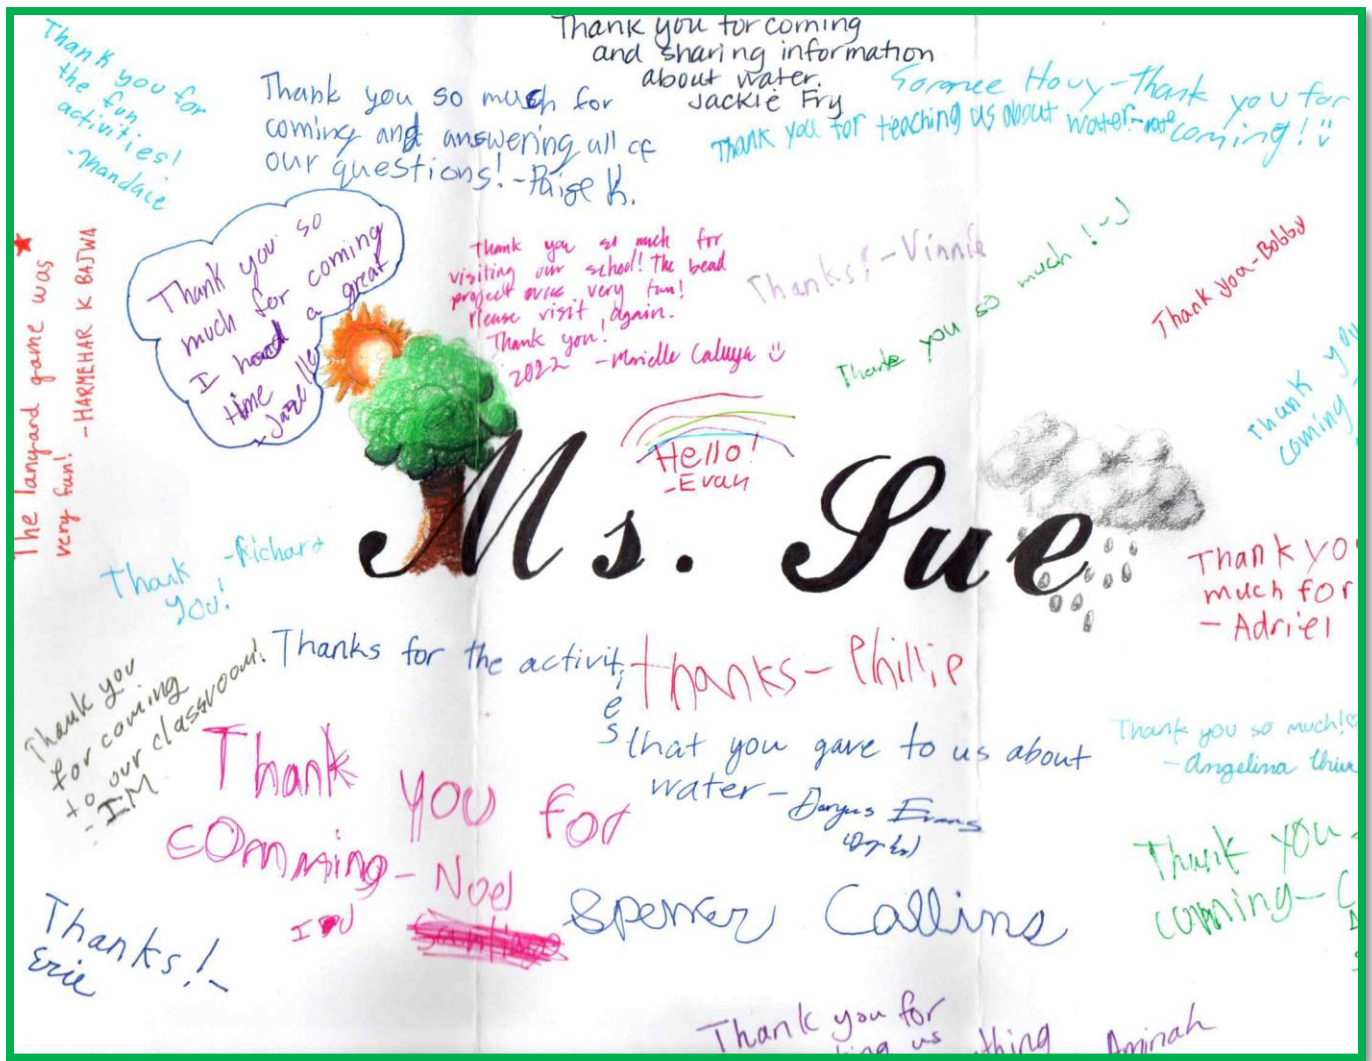 Thank you for
the fun
activities!
-Mandace
Thank you so much for
coming and answering all of
our questions! -Paige K.
Thank you for coming
and sharing information
about water.
Jackie Fry
Thank you for
coming! :)
Thank you for teaching us about water-
The lanyard game was
very fun!
-HARMEHAR K BAJWA
Thank you so
much for coming
I had a great
time
Thank you so much for
visiting our school! The bead
project was very fun!
Please visit again.
Thank you!
2022 -Marielle Caluya :)
Thanks! -Vinnie
Thank you so much! -J
Thank you-Bobby
Thank you
coming
Hello!
-Evan
Ms. Sue
Thank
you!
-Richard
Thank yo
much for
- Adriel
Thank you
for coming
to our classroom!
- IM
Thanks for the activities
that you gave to us about
water- Evans
thanks- Phillip
Thank you so much!
-Angelina
Thank
you for
comming- Noel
Thank you
comming- C
Spencer Collins
Thanks! -
Eric
Thank you for
us thing Aminah